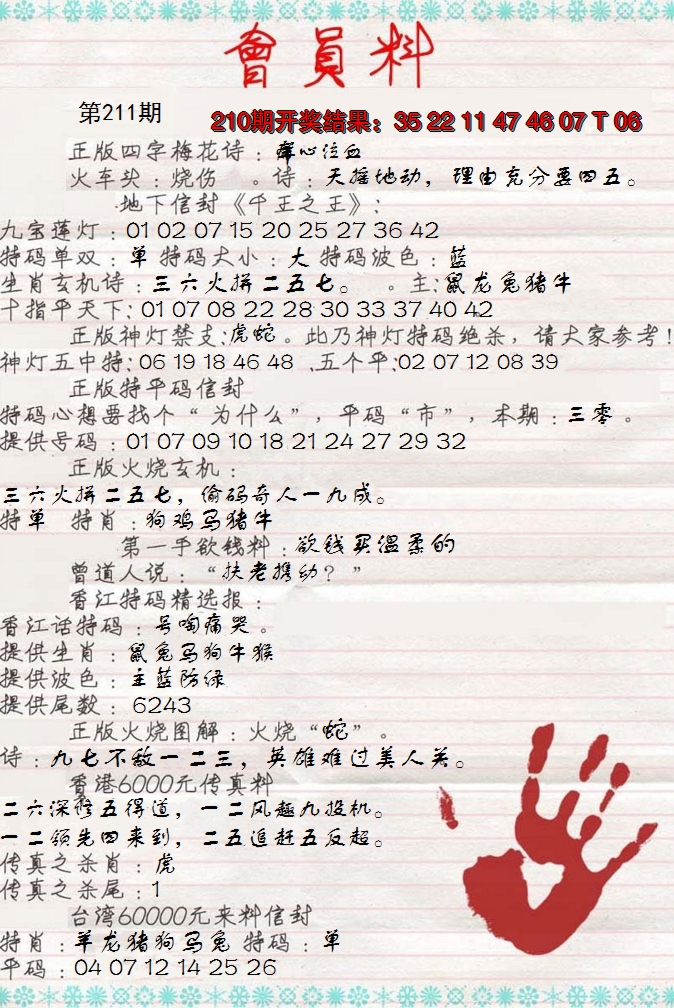 會員料
第211期
210期开奖结果：35 22 11 47 46 07 T 06
正版四字梅花诗：痒心泣血
火车头：烧伤 。诗：天摇地动，理由充分要四五。
地下信封《千王之王》：
九宝莲灯：01 02 07 15 20 25 27 36 42
特码单双：单 特码大小：大 特码波色：蓝
生肖玄机诗：三六火拼二五七。 。主：鼠龙兔猪牛
十指平天下：01 07 08 22 28 30 33 37 40 42
正版神灯禁支：虎蛇。此乃神灯特码绝杀，请大家参考！
神灯五中特：06 19 18 46 48 .五个平：02 07 12 08 39
正版特平码信封
特码心想要找个“为什么”，平码“市”，本期：三零。
提供号码：01 07 09 10 18 21 24 27 29 32
正版火烧玄机：
三六火拼二五七，偷码奇人一九成。
特单 特肖：狗鸡马猪牛
第一手欲钱料：欲钱买温柔的
曾道人说：“扶老携幼？”
香江特码精选报：
香江话特码：号啕痛哭。
提供生肖：鼠兔马狗牛猴
提供波色：主蓝防绿
提供尾数：6243
正版火烧图解：火烧“蛇”。
诗：九七不敌一二三，英雄难过美人关。
香港6000元传真料
二六深修五得道，一二风趣九投机。
一二领先四来到，二五追赶五反超。
传真之杀肖：虎
传真之杀尾：1
台湾60000元来料信封
特肖：羊龙猪狗马兔 特码：单
平码：04 07 12 14 25 26